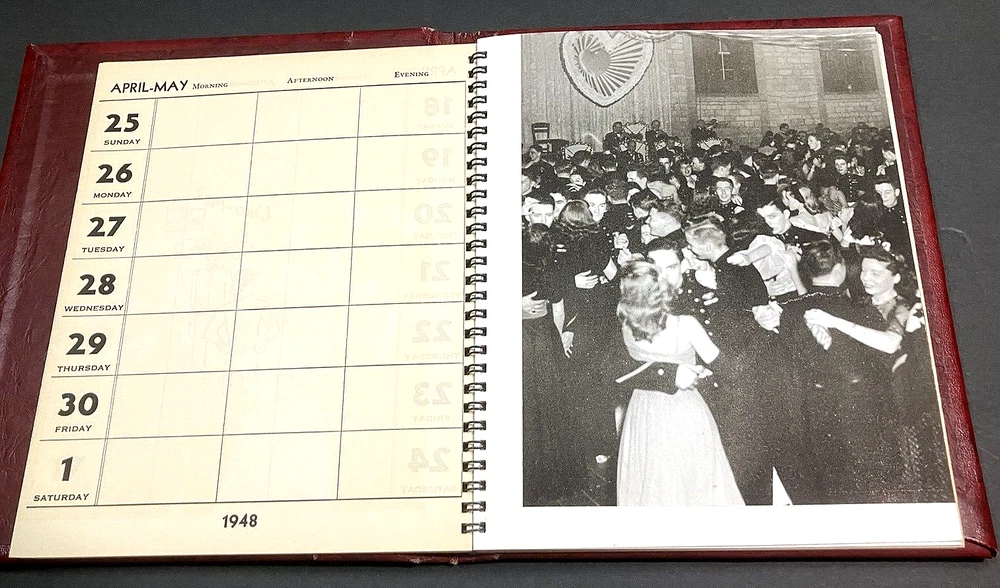 APRIL-MAY MORNING AFTERNOON EVENING
25
SUNDAY
26
MONDAY
27
TUESDAY
28
WEDNESDAY
29
THURSDAY
30
FRIDAY
1
SATURDAY
1948